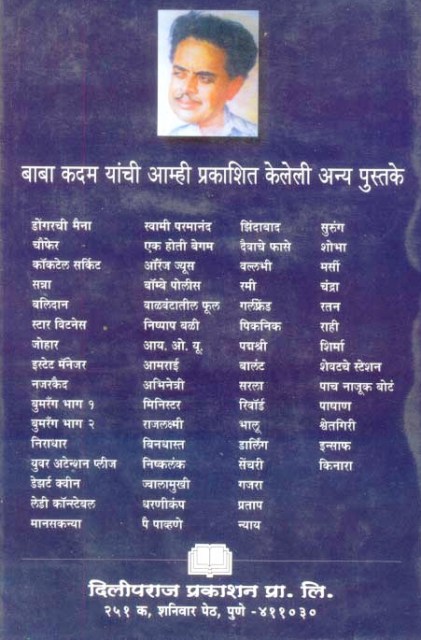 बाबा कदम यांची आम्ही प्रकाशित केलेली अन्य पुस्तके
डोंगरची मैना
चौफेर
कॉकटेल सर्किट
सत्रा
बलिदान
स्टार विटनेस
जोहार
इस्टेट मॅनेजर
नजरकैद
बुमरँग भाग १
बुमरँग भाग २
निराधार
युवर अटेन्शन प्लीज
डेझर्ट क्वीन
लेडी कॉन्स्टेबल
मानसकन्या
स्वामी परमानंद
एक होती बेगम
ऑरेंज ज्यूस
बॉम्बे पोलीस
वाळवंटातील फूल
निष्पाप बळी
आय. ओ. यू.
आमराई
अभिनेत्री
मिनिस्टर
राजलक्ष्मी
बिनधास्त
निष्कलंक
ज्वालामुखी
धरणीकंप
पै पाव्हणे
झिंदाबाद
दैवाचे फासे
वल्लभी
रमी
गर्लफ्रेंड
पिकनिक
पद्मश्री
बालंट
सरला
रिवॉर्ड
भालू
डार्लिंग
सेंचरी
गजरा
प्रताप
न्याय
सुरुंग
शोभा
मर्सी
चंद्रा
रतन
राही
शिर्मा
शेवटचे स्टेशन
पाच नाजूक बोटं
पाषाण
श्वेतगिरी
इन्साफ
किनारा
दिलीपराज प्रकाशन प्रा. लि.
२५१ क, शनिवार पेठ, पुणे -४११०३०